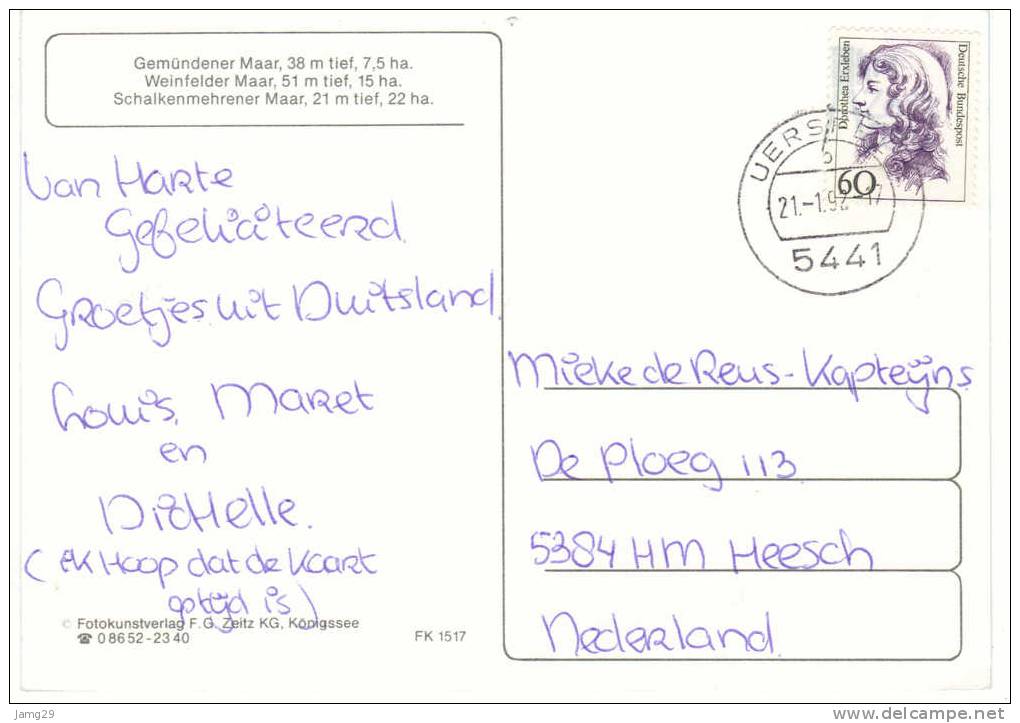 Gemündener Maar, 38 m tief, 7,5 ha.
Weinfelder Maar, 51 m tief, 15 ha.
Schalkenmehrener Maar, 21 m tief, 22 ha.
Van Harte
Gefeliciteerd
Groetjes uit Duitsland
Louis, Maret
en
Michelle.
(ik Hoop dat de Kaart
optijd is)
© Fotokunstverlag F. G. Zeitz KG, Königssee
☎ 0 86 52 - 23 40
FK 1517
Dorothea Erxleben
Deutsche Bundespost
60
UERS
21.-1.92-17
5441
Mieke de Reus-Kapteijns
De Ploeg 113
5384 HM Heesch
Nederland
Jamg29
www.delcampe.net